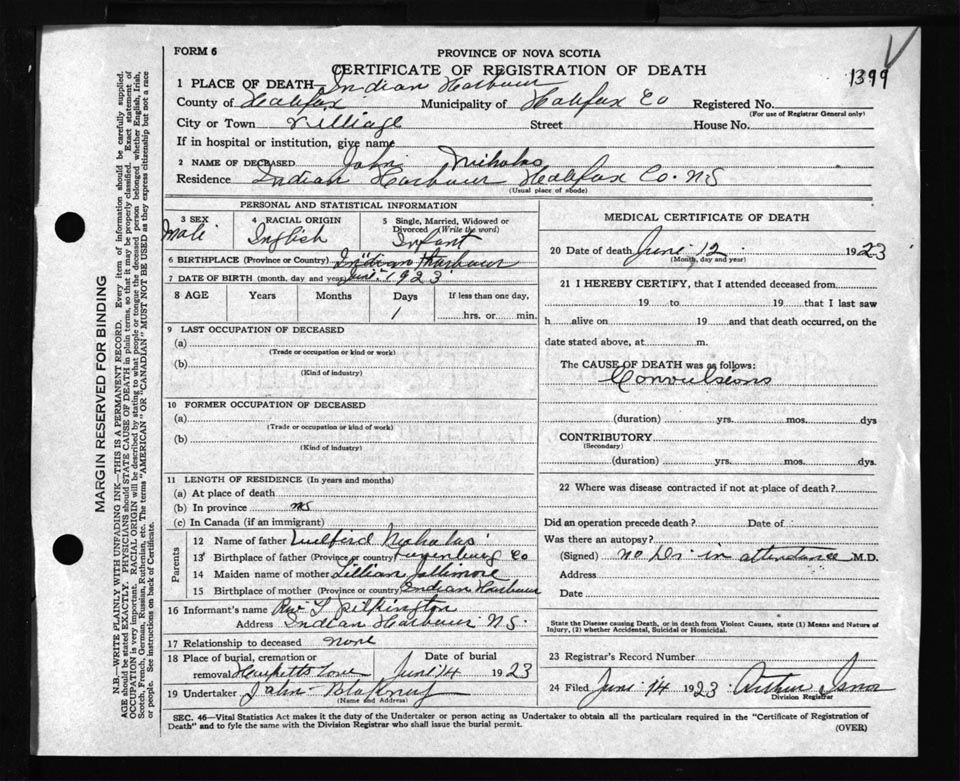 FORM 6
PROVINCE OF NOVA SCOTIA
CERTIFICATE OF REGISTRATION OF DEATH
1399
1 PLACE OF DEATH Indian Harbour
County of Halifax Municipality of Halifax Co Registered No.
(For use of Registrar General only)
City or Town Villiage Street House No.
If in hospital or institution, give name
2 NAME OF DECEASED John Nicholas
Residence Indian Harbour Halifax Co. NS
(Usual place of abode)
PERSONAL AND STATISTICAL INFORMATION
3 SEX Male
4 RACIAL ORIGIN Inglish
5 Single, Married, Widowed or Divorced (Write the word) Infant
6 BIRTHPLACE (Province or Country) Indian Harbour
7 DATE OF BIRTH (month, day and year) 1923
8 AGE Years Months Days If less than one day,
1 hrs. or min.
9 LAST OCCUPATION OF DECEASED
(a)
(Trade or occupation or kind or work)
(b)
(Kind of industry)
10 FORMER OCCUPATION OF DECEASED
(a)
(Trade or occupation or kind of work)
(b)
(Kind of industry)
11 LENGTH OF RESIDENCE (In years and months)
(a) At place of death
(b) In province NS
(c) In Canada (if an immigrant)
Parents
12 Name of father
13 Birthplace of father (Province or country) Lunenburg Co
14 Maiden name of mother Lillian
15 Birthplace of mother (Province or country) Indian Harbour
16 Informant's name Rev Pilkington
Address Indian Harbour NS.
17 Relationship to deceased none
18 Place of burial, cremation or Date of burial
removal June 14 1923
19 Undertaker John
(Name and Address)
MEDICAL CERTIFICATE OF DEATH
20 Date of death June 12 1923
(Month, day and year)
21 I HEREBY CERTIFY, that I attended deceased from
19 to 19 that I last saw
h alive on 19 and that death occurred, on
date stated above, at m.
The CAUSE OF DEATH was as follows:
Convulsions
(duration) yrs. mos. dys
CONTRIBUTORY
(Secondary)
(duration) yrs. mos. dys.
22 Where was disease contracted if not at place of death?
Did an operation precede death? Date of
Was there an autopsy?
(Signed) no Dr in attendance M.D.
Address
Date
State the Disease causing Death, or in death from Violent Causes, state (1) Means and Nature of
Injury, (2) whether Accidental, Suicidal or Homicidal.
23 Registrar's Record Number
24 Filed June 14 1923 Arthur
Division Registrar
SEC. 46—Vital Statistics Act makes it the duty of the Undertaker or person acting as Undertaker to obtain all the particulars required in the "Certificate of Registration of
Death" and to fyle the same with the Division Registrar who shall issue the burial permit.
(OVER)
MARGIN RESERVED FOR BINDING
N.B.—WRITE PLAINLY WITH UNFADING INK—THIS IS A PERMANENT RECORD. Every item of information should be carefully supplied.
AGE should be stated EXACTLY. PHYSICIANS should STATE CAUSE OF DEATH in plain terms, so that it may be properly classified. Exact statement of
OCCUPATION is very important. RACIAL ORIGIN will be described by stating to what people or tongue the deceased person belonged whether English, Irish,
Scotch, French, German, Russian, Ruthenian, etc. The terms "AMERICAN" OR "CANADIAN" MUST NOT BE USED as they express citizenship but not a race
or people. See instructions on back of Certificate.